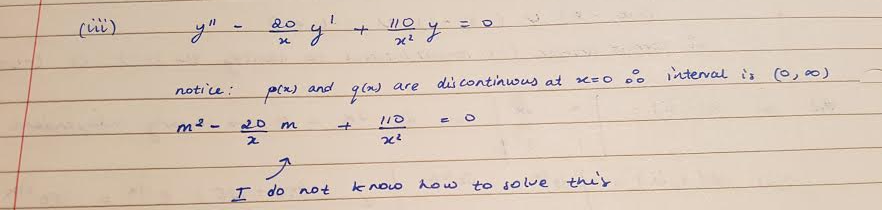 (iii) y'' - 20/x y' + 110/x² y = 0
notice: p(x) and q(x) are discontinuous at x=0 ∴ interval is (0, ∞)
m² - 20/x m + 110/x² = 0
I do not know how to solve this